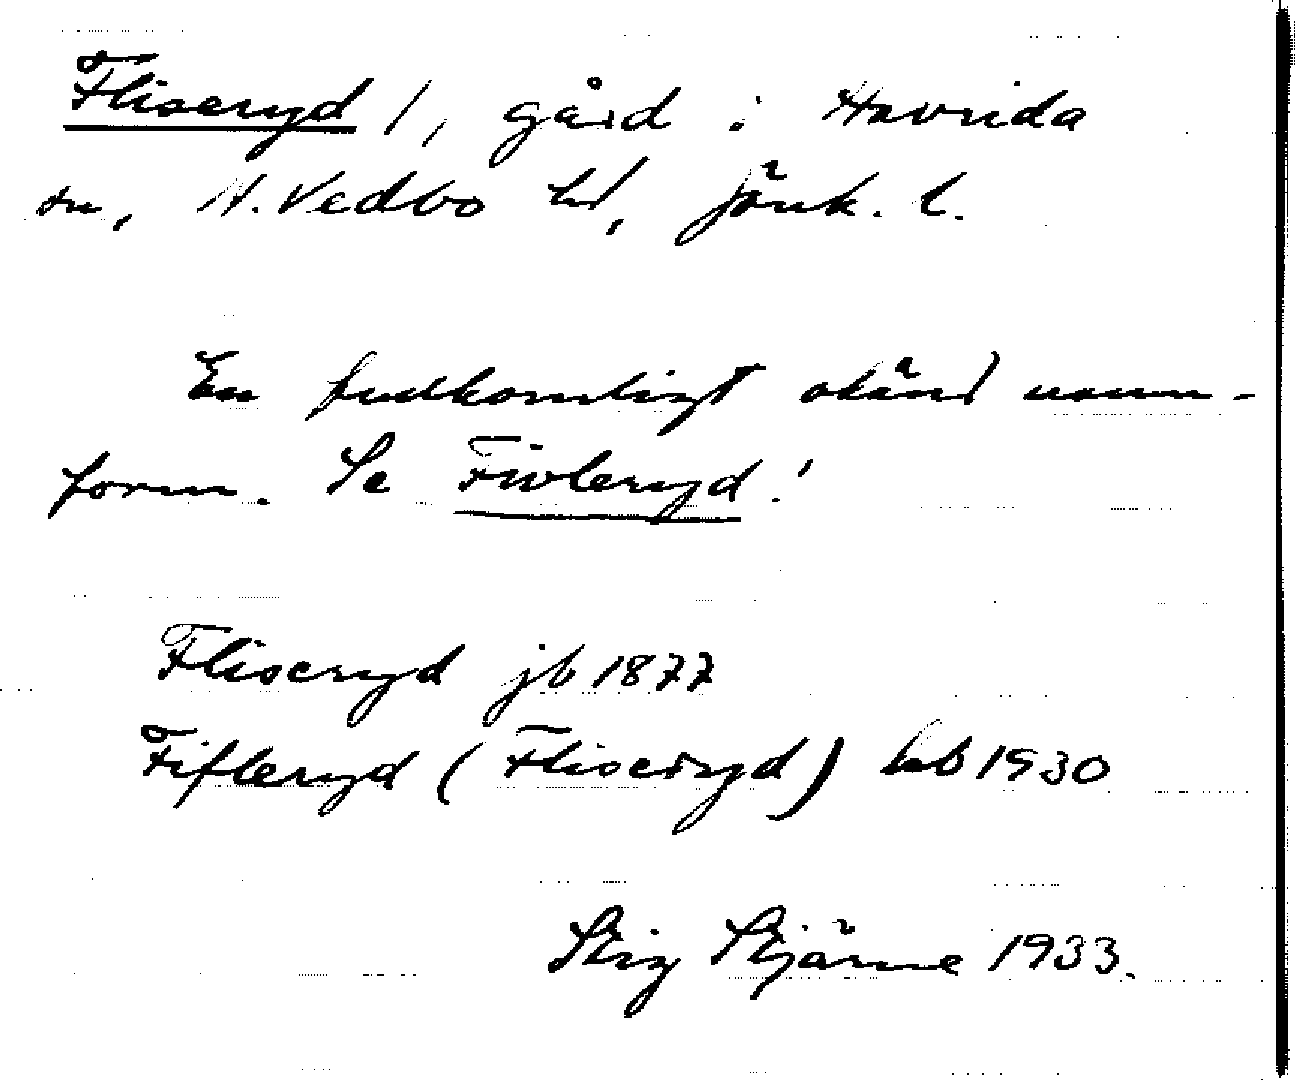 Fliseryd 1, gård i Haurida
sn, N. Vedbo hd, Jönk. l.
En fullkomligt okänd namn-
form. Se Fivleryd!
Fliseryd jb 1877
Fifleryd (Fliseryd) hb 1930
Stig Stjärne 1933.